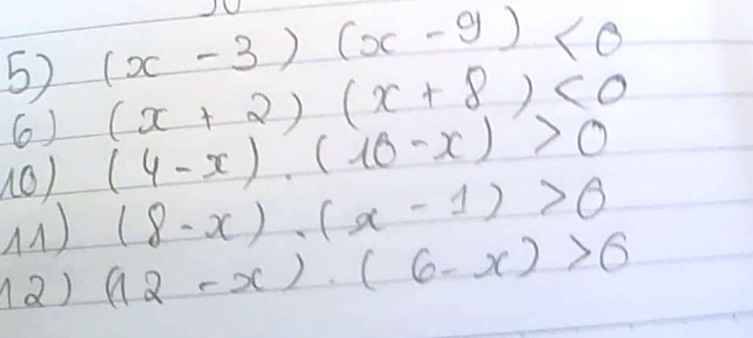 5) (x - 3) (x - 9) < 0
6) (x + 2) (x + 8) < 0
10) (4 - x) . (10 - x) > 0
11) (8 - x) . (x - 1) > 0
12) (12 - x) . (6 - x) > 0